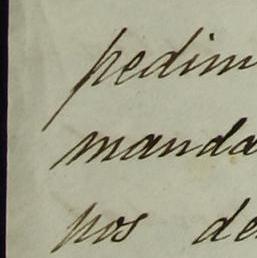 pedim
manda
pos de